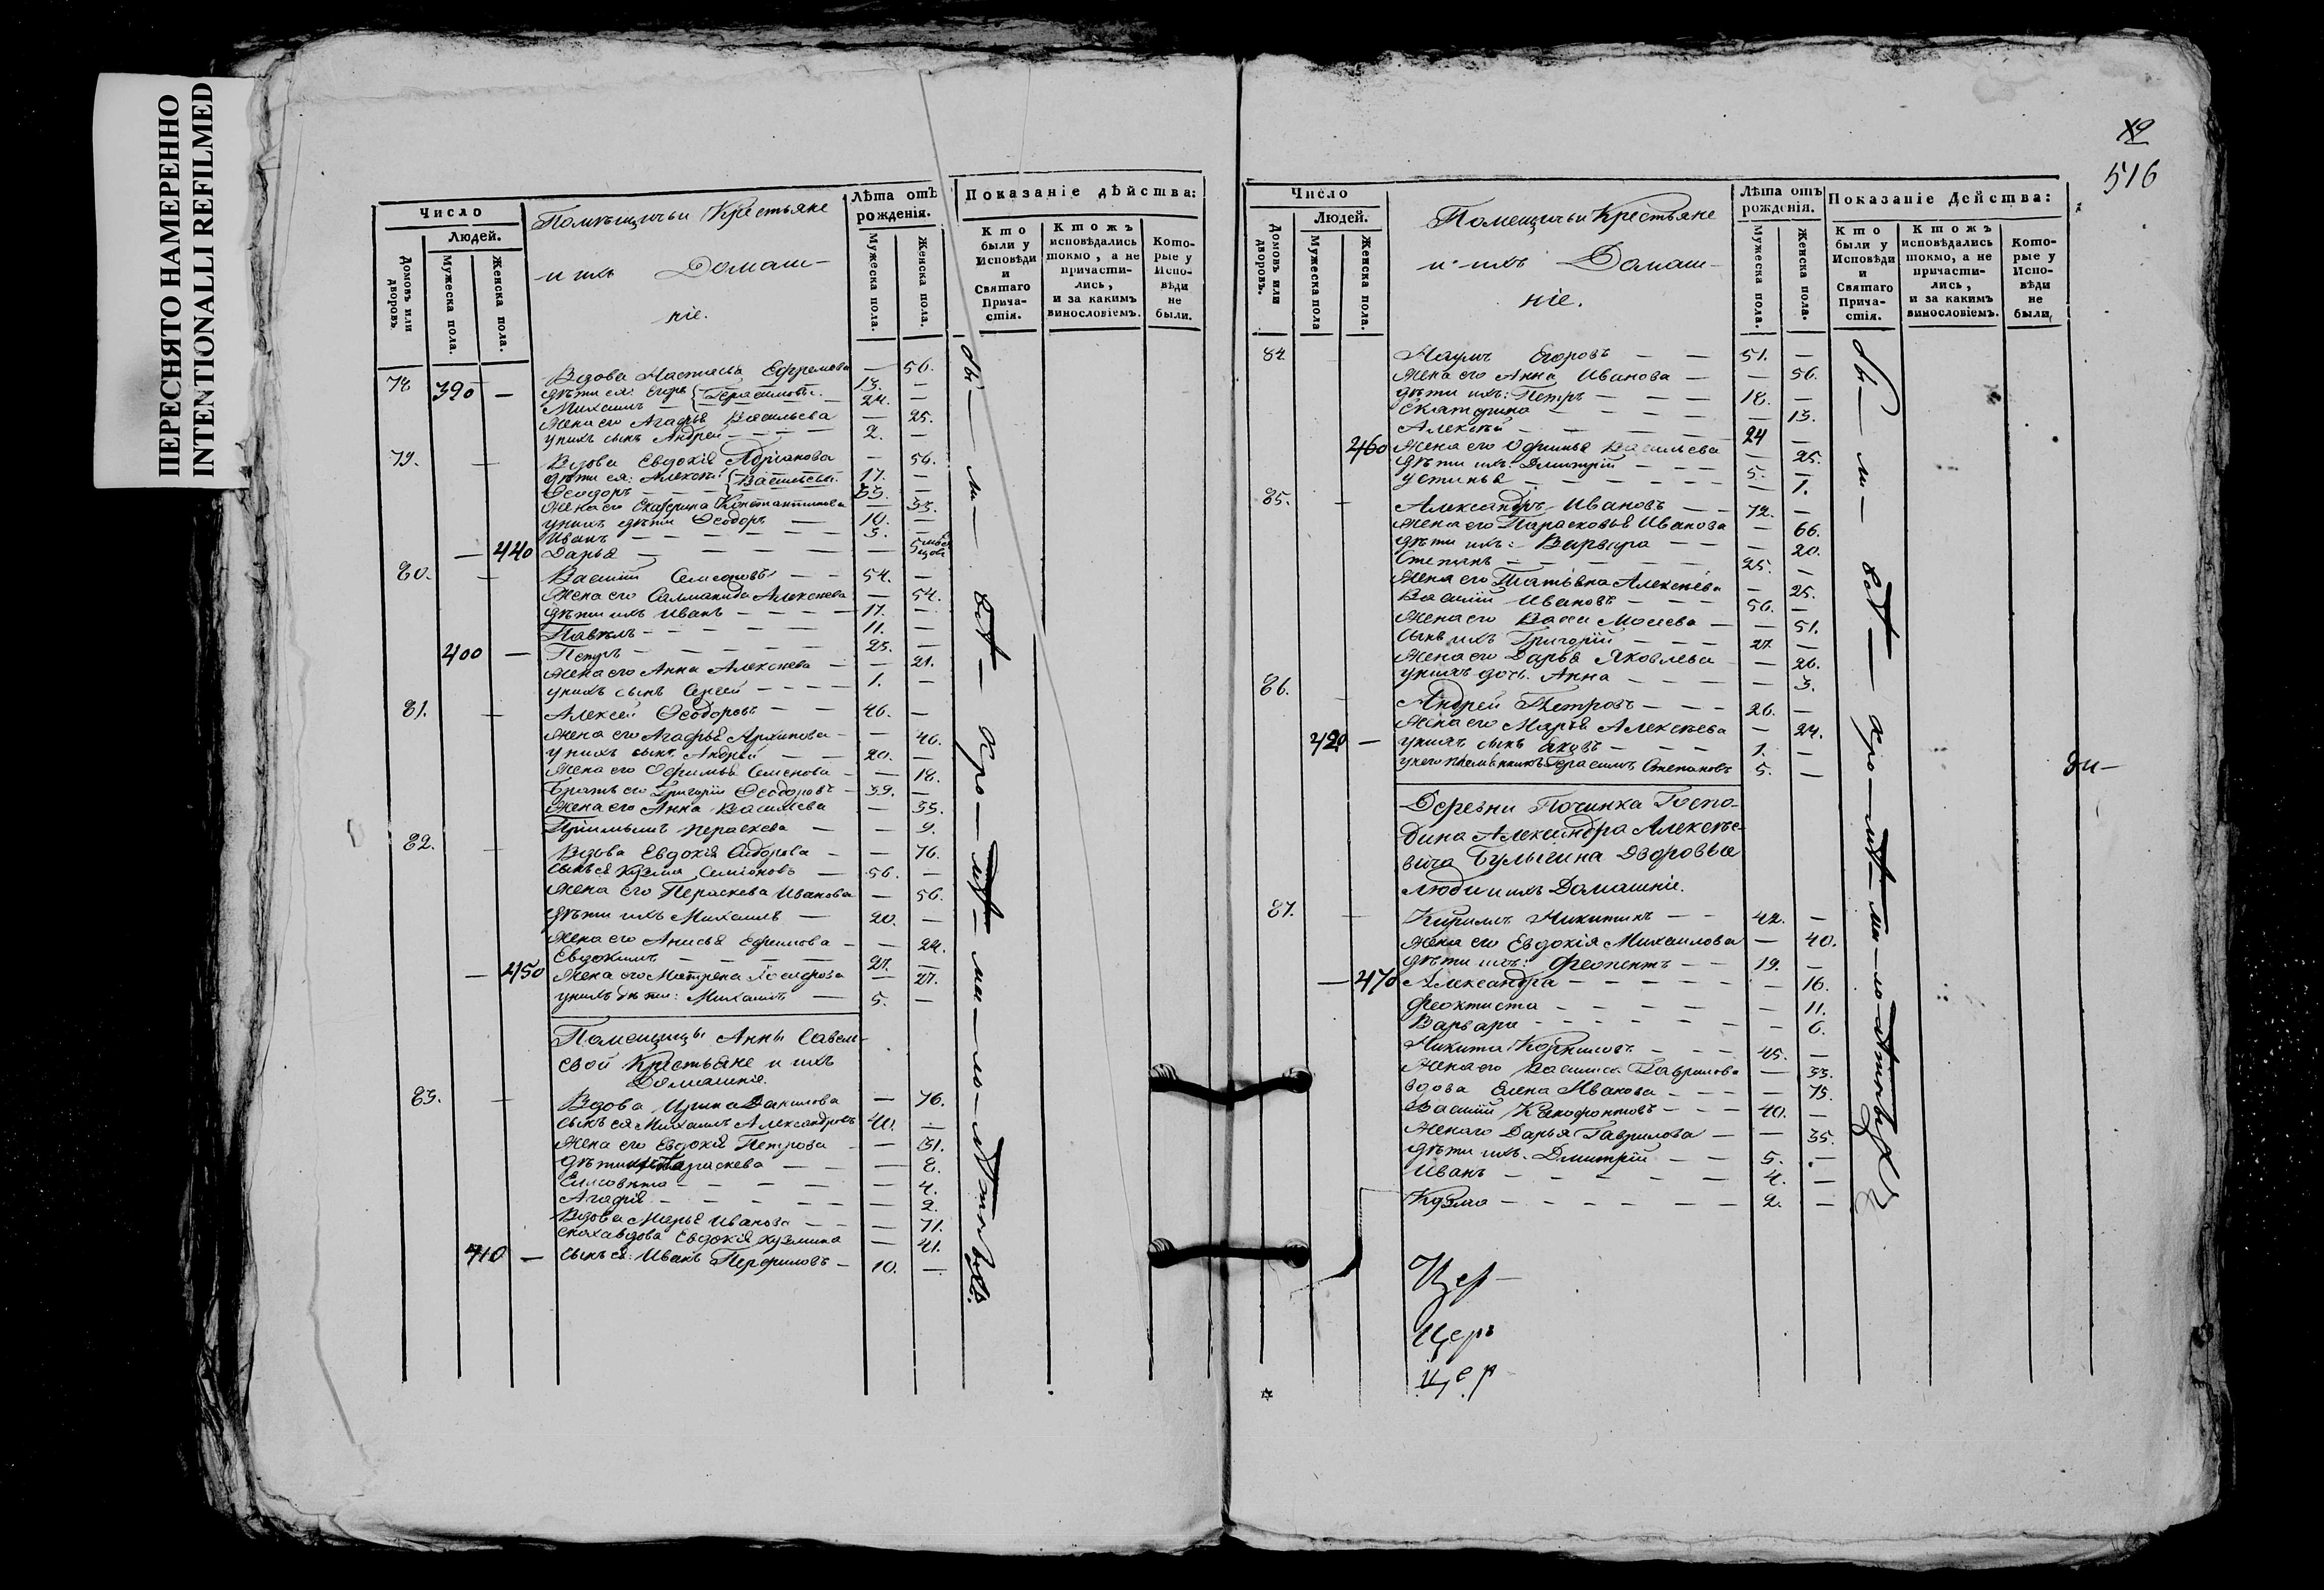 ПЕРЕСНЯТО НАМЕРЕННО
INTENTIONALLI REFILMED
Число
Людей.
Домовъ или дворовъ.
Мужеска пола.
Женска пола.
Помѣщичьи Крестьяне
и ихъ Домаш-
ніе.
Лѣта отъ рожденія.
Мужеска пола.
Женска пола.
Показаніе дѣйства:
Кто были у Исповѣди и Святаго Прича- стія.
Ктожъ исповѣдались токмо, а не причасти- лись, и за какимъ винословіемъ.
Кото- рые у Испо- вѣди не были.
Вдова Настасья Ефремова — 56.
78 390 — дѣти ея: Егоръ Герасимовы. 13. —
Михаилъ — 24. —
Жена его Агафья Васильева — 25.
у нихъ сынъ Андрей — 2. —
79. — Вдова Евдокія Адріанова — 54.
дѣти ея: Алексѣй Васильевы. 17. —
Ѳеодоръ — 33. —
Жена его Екатерина Константинова — 33.
у нихъ дѣти Ѳеодоръ — 10. —
Иванъ — 3. —
— 440 Дарья — 5
80. — Василій Семеновъ — 54. —
Жена его Саломанида Алексеева — 54.
дѣти ихъ Иванъ — 17. —
Павелъ — 11. —
400 — Петръ — 25. —
Жена его Анна Алексѣева — 21.
у нихъ сынъ Сергей — 1. —
81. — Алексей Ѳеодоровъ — 46. —
Жена его Агафья Архипова — 46.
у нихъ сынъ Андрей — 20. —
Жена его Офимья Семенова — 18.
Братъ его Григорій Ѳеодоровъ — 39. —
Жена его Анна Васильева — 35.
Параскева — 9.
82. — Вдова Евдокія Сидорова — 76.
Сынъ ея Кузма Семіоновъ — 56. —
Жена его Параскева Иванова — 56.
дѣти ихъ Михаилъ — 20. —
Жена его Анисья Ефимова — 24.
Евдокимъ — 27. —
— 450 Жена его Матрена — 27.
у нихъ дѣти: Михаилъ — 5. —
Помещицы Анны Савель-
евой Крестьяне и ихъ
Домашніе.
83. — Вдова Ирина Данилова — 76.
Сынъ ея Михаилъ Александровъ 40. —
Жена его Евдокія Петрова — 31.
дѣти ихъ Параскева — 8.
Елисовета — 4.
Агафія — 2.
Вдова Марья Иванова — 71.
сноха вдова Евдокія Кузмина — 41.
410 — Сынъ ея: Иванъ Перфиловъ — 10. —
516
Число
Людей.
Домовъ или дворовъ.
Мужеска пола
Женска пола.
Помещичьи Крестьяне
и ихъ Домаш-
ніе.
Лѣта отъ рожденія.
Мужеска пола.
Женска пола.
Показаніе Дейсмва:
Кто были у Исповѣди и Святаго Прича- стія.
Ктожъ исповѣдались токмо, а не причасти- лись, и за какимъ винословіемъ.
Кото- рые у Испо- вѣди не были,
84. Наумъ Егоровъ — 51. —
Жена его Анна Иванова — 56.
дѣти ихъ: Петръ — 18. —
Екатерина — 13.
Алексѣй — 24 —
460 Жена его Офимья Васильева — 25.
дѣти ихъ: Дмитрій — 5. —
Устинья — 1.
85. — Александръ Ивановъ — 72. —
Жена его Парасковья Иванова — 66.
дѣти ихъ: Варвара — 20.
Степанъ — 25. —
Жена его Татьяна Алексѣева — 25.
Василій Ивановъ — 56. —
Жена его Васса Моисева — 51.
Сынъ ихъ Григорій — 27. —
Жена его Дарья Яковлева — 26.
у нихъ дочь Анна — 3.
86. — Андрей Петровъ — 26. —
Жена его Марья Алексѣева — 24.
420 — у нихъ сынъ Яковъ — 1. —
у него племянникъ Герасимъ Степановъ 5. —
Деревни Починка Госпо-
дина Александра Алексѣе-
вича Булыгина Дворовые
люди и ихъ Домашніе.
87. — Кирилъ Никитинъ — 42. —
Жена его Евдокія Михаилова — 40.
дѣти ихъ: Феопентъ — 19. —
— 470 Александра — 16.
Феоктиста — 11.
Варвара — 6.
Никита Корниловъ — 45. —
Жена его Василиса Гаврилова — 33.
вдова Елена Иванова — 75.
Василій Ксенофонтовъ — 40. —
Жена его Дарья Гаврилова — 35.
дѣти ихъ. Дмитрій — 5. —
Иванъ — 4. —
Кузма — 2. —
Цер-
Церъ
цер